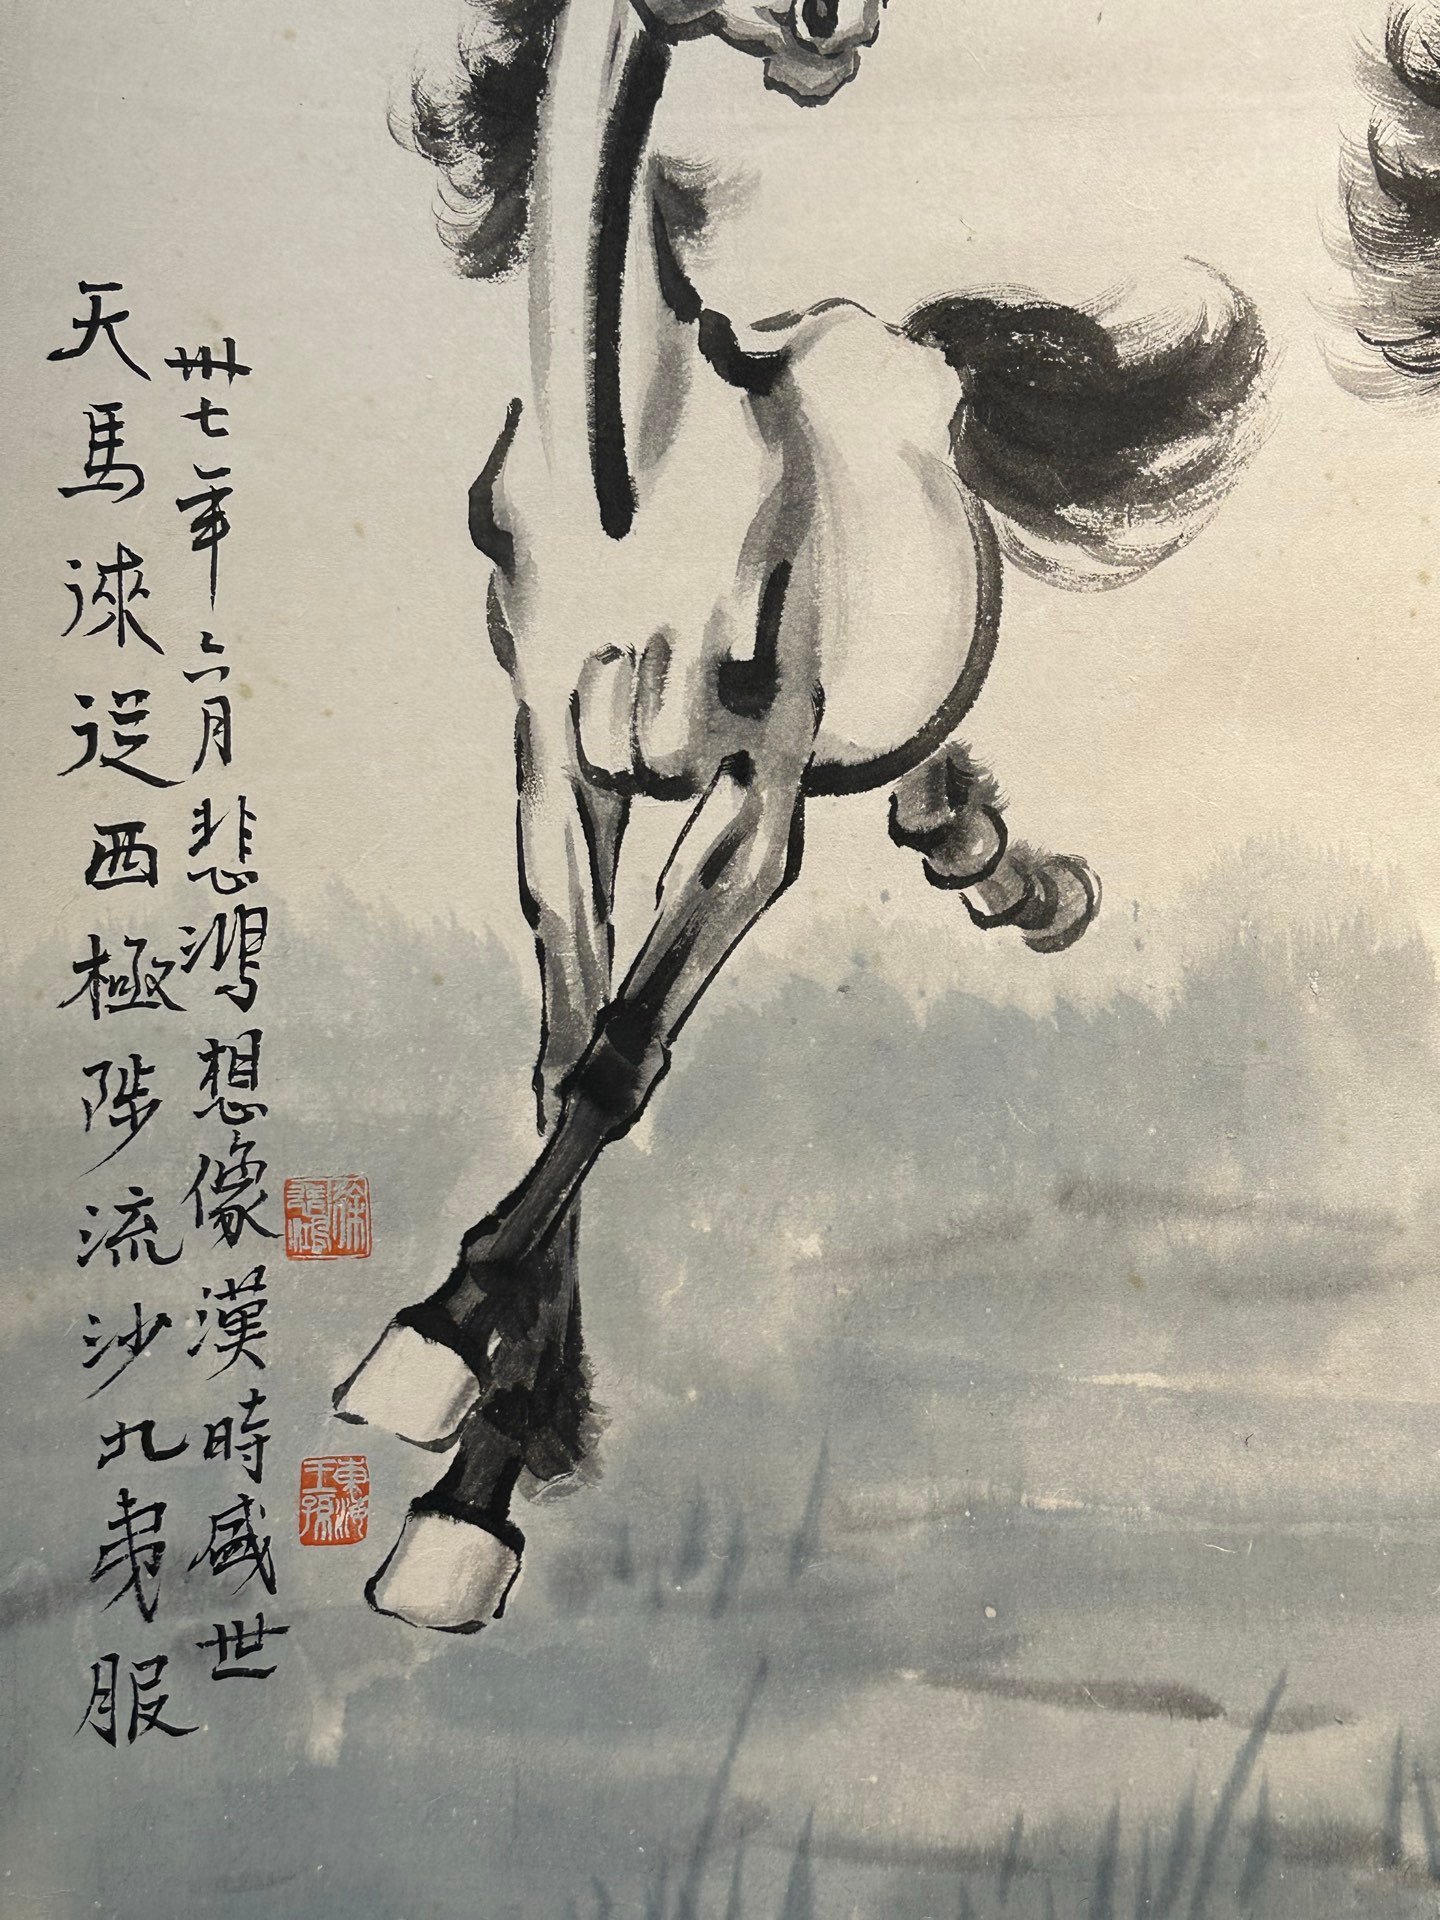 天馬徠從西極陟流沙九夷服
卅七年六月悲鴻想像漢時盛世
徐悲鴻
東海王孫